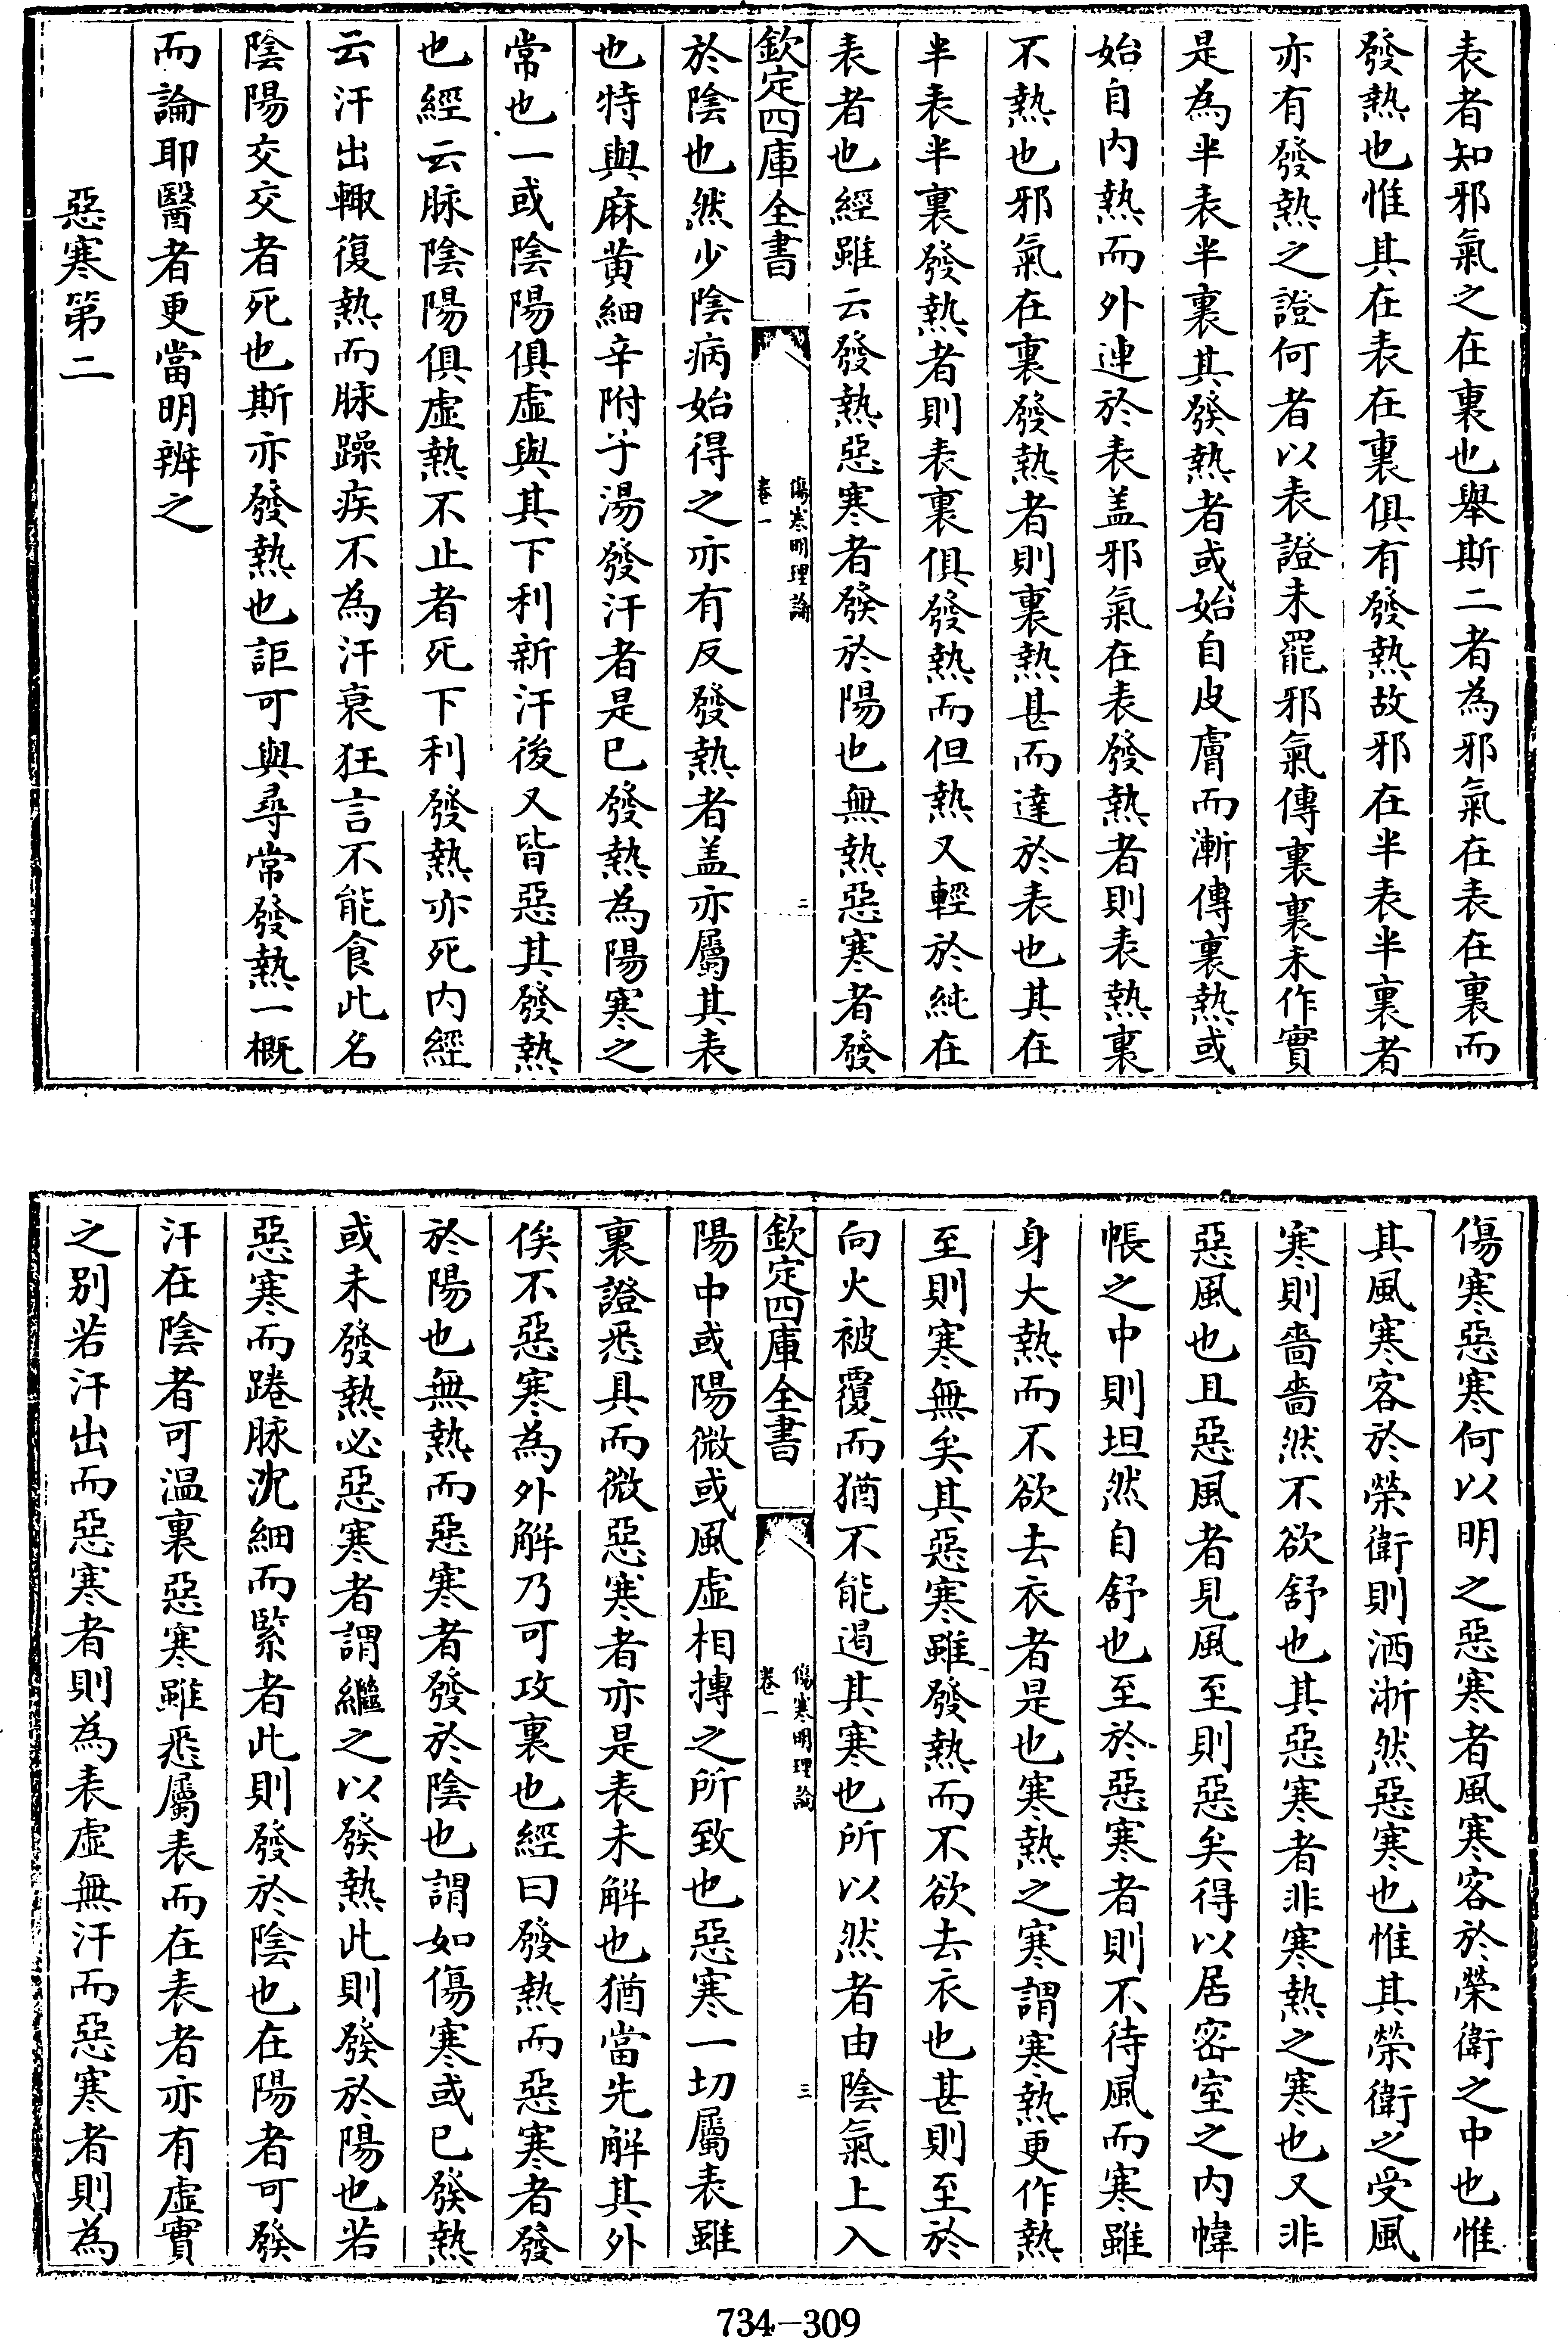 表者知邪氣之在裏也舉斯二者為邪氣在表在裏而
發熱也惟其在表在裏俱有發熱故邪在半表半裏者
亦有發熱之證何者以表證未罷邪氣傳裏裏未作實
是為半表半裏其發熱者或始自皮膚而漸傳裏熱或
始自内熱而外連於表盖邪氣在表發熱者則表熱裏
不熱也邪氣在裏發熱者則裏熱甚而達於表也其在
半表半裏發熱者則表裏俱發熱而但熱又輕於純在
表者也經雖云發熱惡寒者發於陽也無熱惡寒者發
欽定四庫全書
傷寒明理論
卷一
二
於陰也然少陰病始得之亦有反發熱者盖亦屬其表
也特與麻黄細辛附子湯發汗者是已發熱為陽寒之
常也一或陰陽俱虛與其下利新汗後又皆惡其發熱
也經云脉陰陽俱虛熱不止者死下利發熱亦死内經
云汗出輙復熱而脉躁疾不為汗衰狂言不能食此名
陰陽交交者死也斯亦發熱也詎可與尋常發熱一概
而論耶醫者更當明辨之
惡寒第二
傷寒惡寒何以明之惡寒者風寒客於榮衛之中也惟
其風寒客於榮衛則洒淅然惡寒也惟其榮衛之受風
寒則嗇嗇然不欲舒也其惡寒者非寒熱之寒也又非
惡風也且惡風者見風至則惡矣得以居密室之内幃
帳之中則坦然自舒也至於惡寒者則不待風而寒雖
身大熱而不欲去衣者是也寒熱之寒謂寒熱更作熱
至則寒無矣其惡寒雖發熱而不欲去衣也甚則至於
向火被覆而猶不能遏其寒也所以然者由陰氣上入
欽定四庫全書
傷寒明理論
卷一
三
陽中或陽微或風虛相搏之所致也惡寒一切屬表雖
裏證悉具而微惡寒者亦是表未解也猶當先解其外
俟不惡寒為外解乃可攻裏也經曰發熱而惡寒者發
於陽也無熱而惡寒者發於陰也謂如傷寒或已發熱
或未發熱必惡寒者謂繼之以發熱此則發於陽也若
惡寒而踡脉沈細而緊者此則發於陰也在陽者可發
汗在陰者可温裏惡寒雖悉屬表而在表者亦有虛實
之别若汗出而惡寒者則為表虛無汗而惡寒者則為
734-309